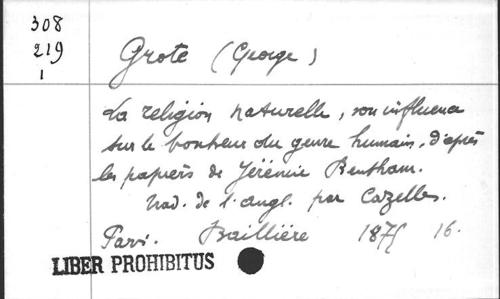 308
219
1
Grote (George)
La religion naturelle, son influence
sur le bonheur du genre humain, d'après
les papiers de Jérémie Bentham.
Trad. de l'angl. par Cazelles.
Paris. Baillière 1875 16.
LIBER PROHIBITUS